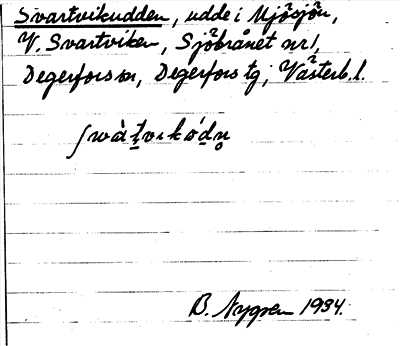 Svartvikudden, udde i Mjösjön,
V. Svartviken, Sjöbrånet nr 1,
Degerfors sn, Degerfors tg, Västerb. l.
B. Nygren 1934.